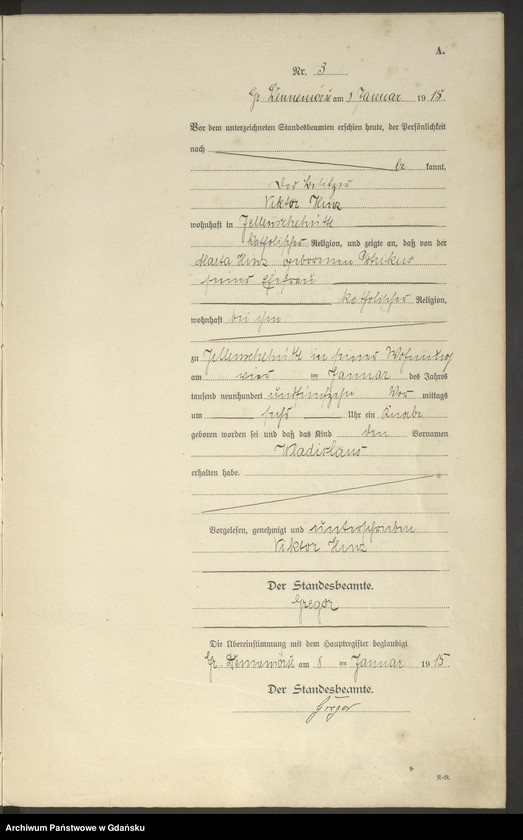 A.
Nr. 3
Gr. am 8 Januar 1915.
Vor dem unterzeichneten Standesbeamten erschien heute, der Persönlichkeit
nach
be kannt,
Der Besitzer
Viktor Hinz
wohnhaft in Jellenschehütte
katholischer Religion, und zeigte an, daß von der
Marta Hinz geborenen
seiner Ehefrau
katholischer Religion,
wohnhaft bei ihm
zu Jellenschehütte in seiner Wohnung
am vier ten Januar des Jahres
tausend neunhundert undfünfzehn Vor mittags
um sechs Uhr ein Knabe
geboren worden sei und daß das Kind den Vornamen
Wladislaus
erhalten habe.
Vorgelesen, genehmigt und unterschrieben
Viktor Hinz
Der Standesbeamte.
Gregor
Die Übereinstimmung mit dem Hauptregister beglaubigt
Gr. am 8 ten Januar 1915.
Der Standesbeamte.
Gregor
Archiwum Państwowe w Gdańsku